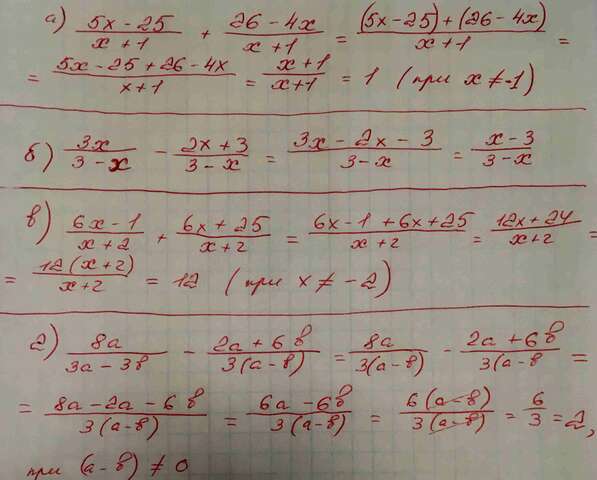 а) (5x - 25)/(x + 1) + (26 - 4x)/(x + 1) = ((5x - 25) + (26 - 4x))/(x + 1) =
= (5x - 25 + 26 - 4x)/(x + 1) = (x + 1)/(x + 1) = 1 (при x ≠ -1)
б) 3x/(3 - x) - (2x + 3)/(3 - x) = (3x - 2x - 3)/(3 - x) = (x - 3)/(3 - x)
в) (6x - 1)/(x + 2) + (6x + 25)/(x + 2) = (6x - 1 + 6x + 25)/(x + 2) = (12x + 24)/(x + 2) =
= 12(x + 2)/(x + 2) = 12 (при x ≠ -2)
г) 8a/(3a - 3в) - (2a + 6в)/(3(a - в)) = 8a/(3(a - в)) - (2a + 6в)/(3(a - в) =
= (8a - 2a - 6в)/(3(a - в)) = (6a - 6в)/(3(a - в)) = 6(a - в)/(3(a - в)) = 6/3 = 2,
при (a - в) ≠ 0